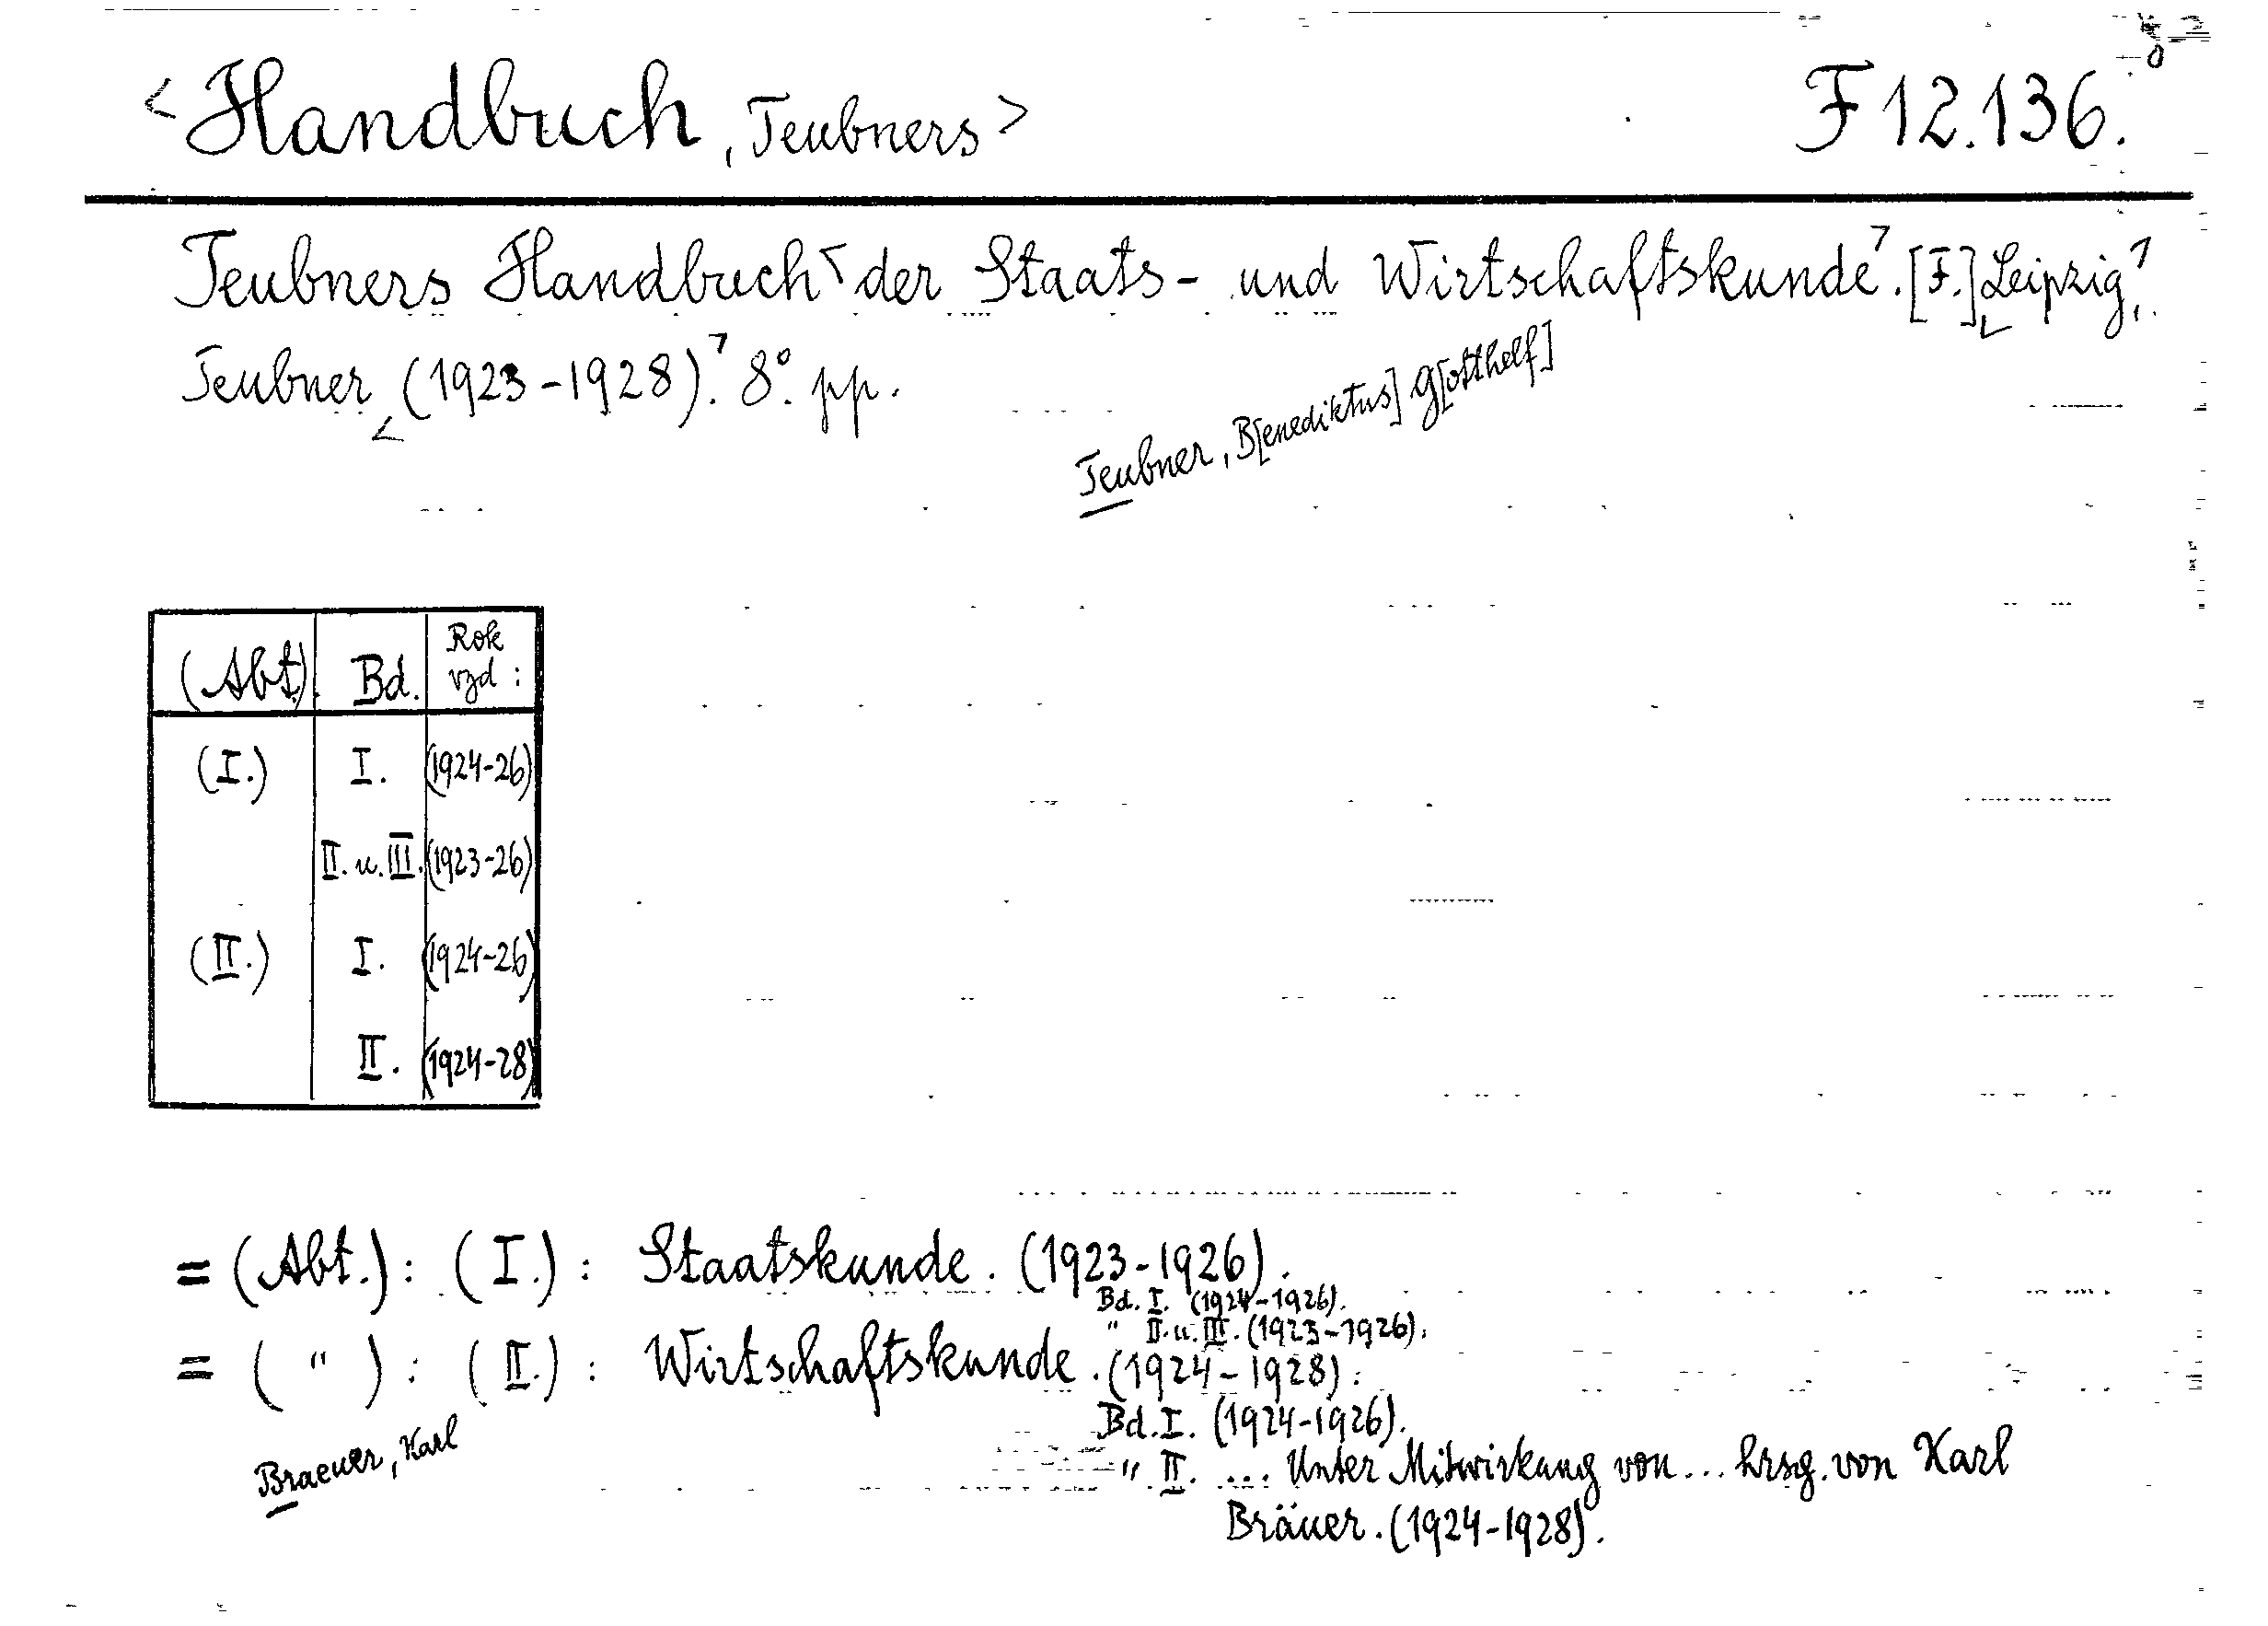 <Handbuch, Teubners> F 12.136.
Teubners Handbuch der Staats- und Wirtschaftskunde. [F.] Leipzig,
Teubner (1923-1928). 8°. pp.
Teubner, B[enediktus] G[otthelf]
(Abt.) Bd. Rok vyd:
(I.) I. (1924-26)
II. u. III. (1923-26)
(II.) I. (1924-26)
II. (1924-28)
= (Abt.): (I.): Staatskunde. (1923-1926).
Bd. I. (1924-1926).
" II. u. III. (1923-1926).
= ( " ): (II.): Wirtschaftskunde. (1924-1928):
Bd. I. (1924-1926).
" II. ... Unter Mitwirkung von ... hrsg. von Karl
Bräuer. (1924-1928).
Braeuer, Karl